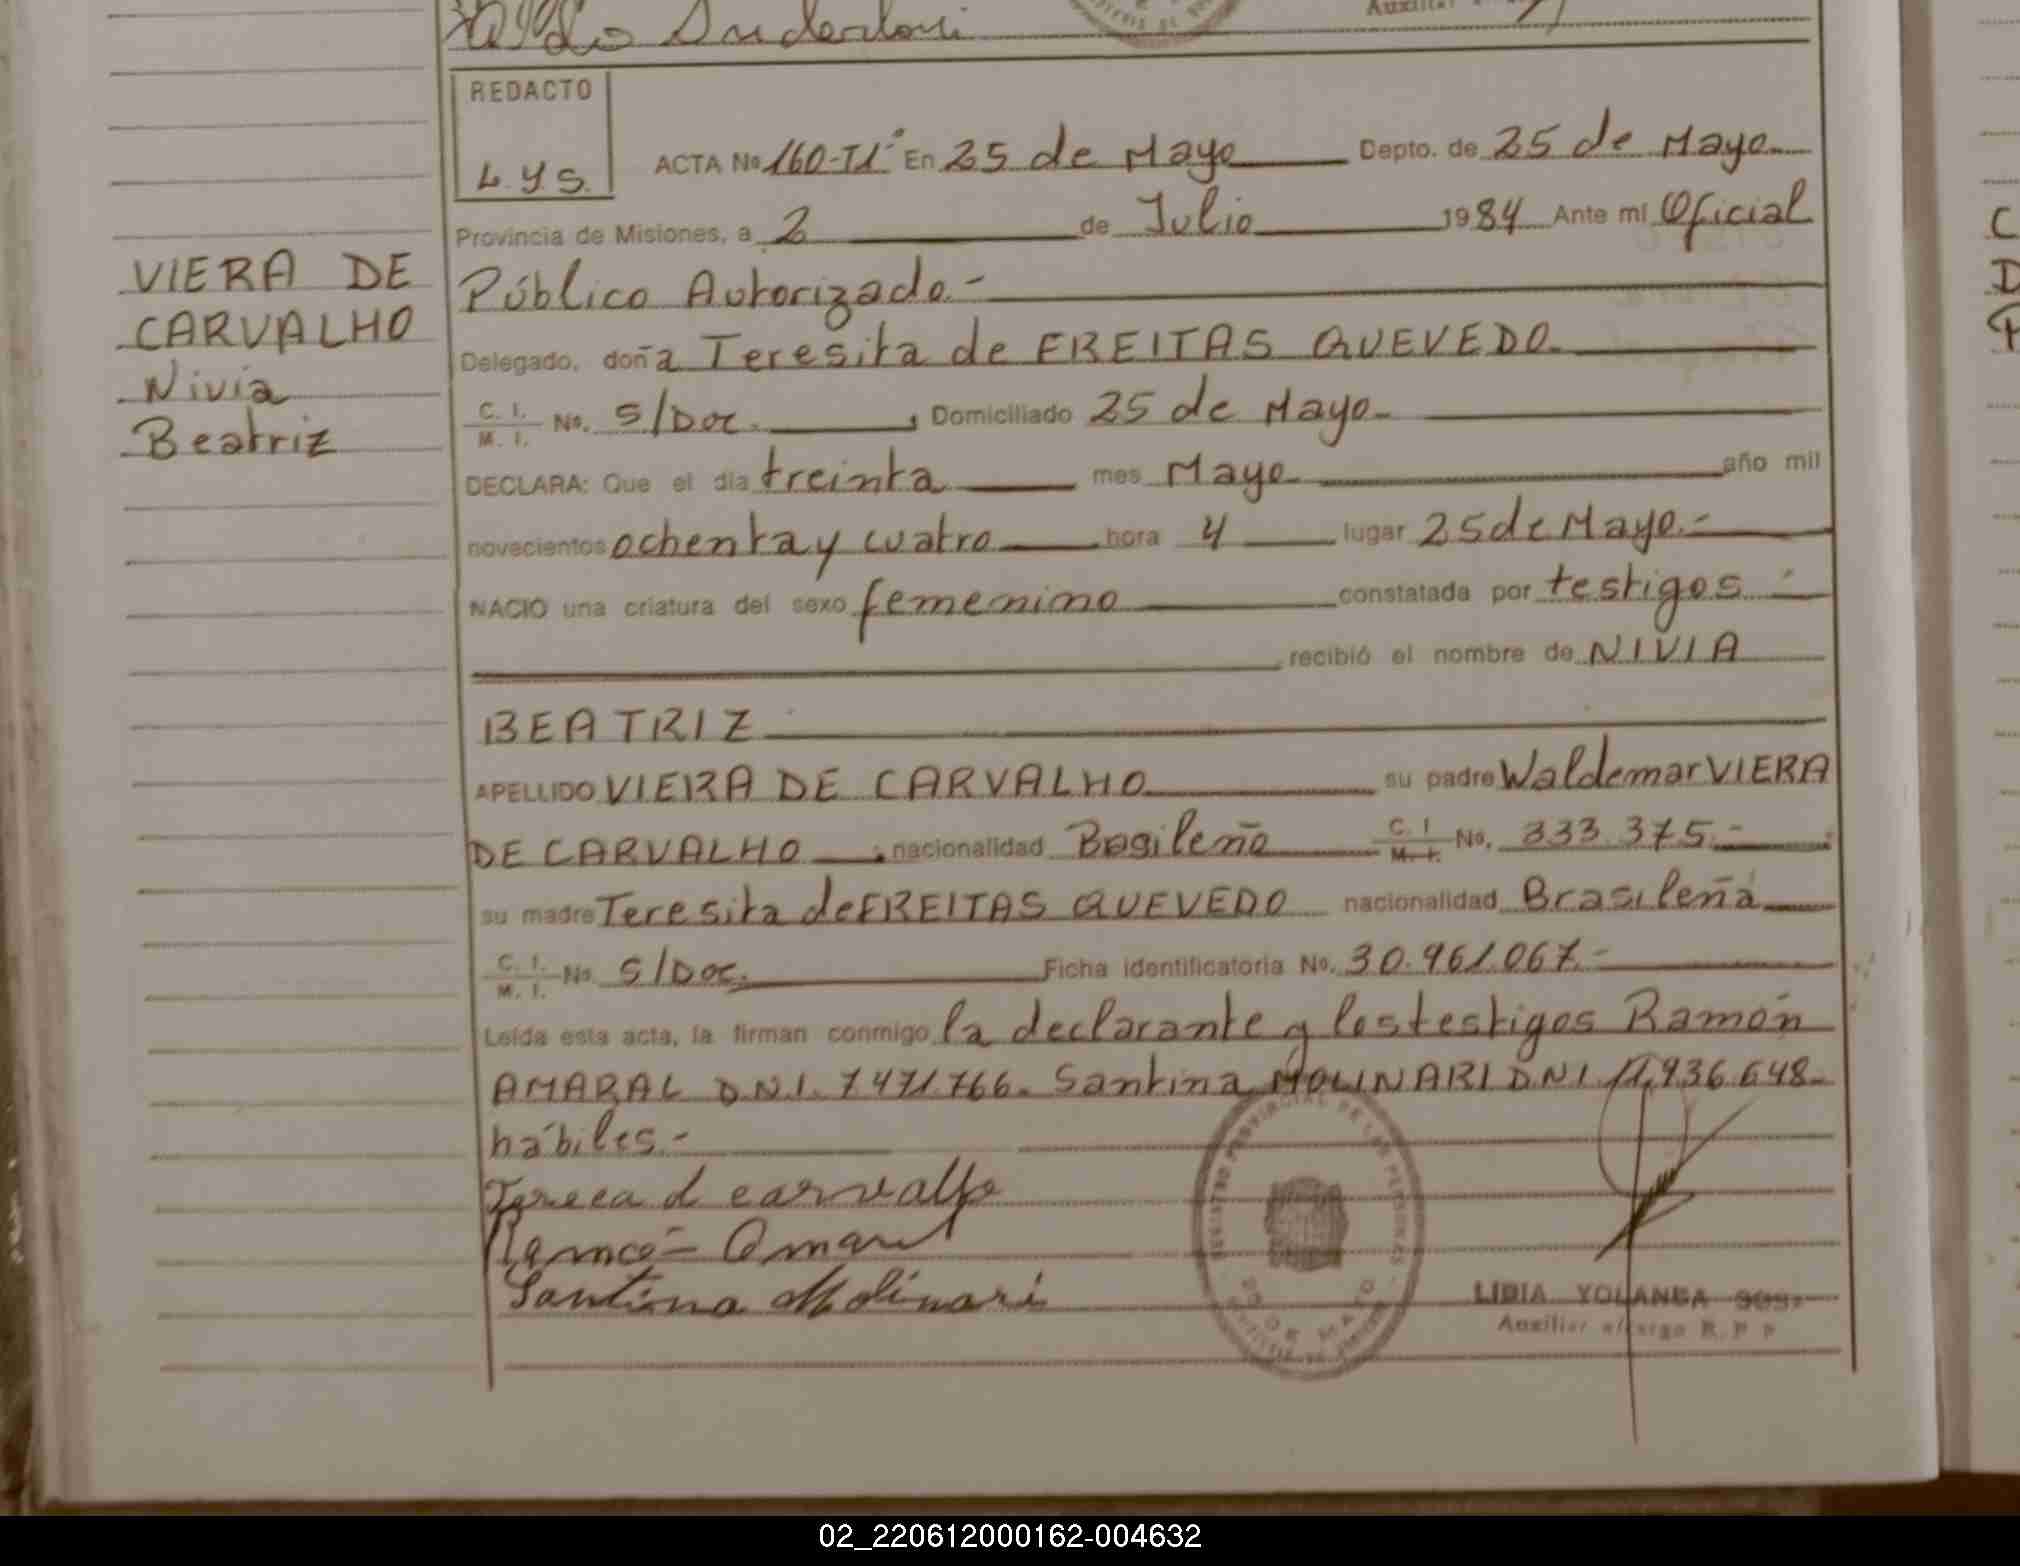 REDACTO
L.y S.
ACTA No 160-T1° En 25 de Mayo Depto. de 25 de Mayo
Provincia de Misiones, a 2 de Julio 1984 Ante mí Oficial
Público Autorizado.-
Delegado, doña Teresita de FREITAS QUEVEDO
C. I. M. I. No. S/Doc. , Domiciliado 25 de Mayo
DECLARA: Que el día treinta mes Mayo año mil
novecientos ochenta y cuatro hora 4 lugar 25 de Mayo.-
NACIO una criatura del sexo femenino constatada por testigos -
recibió el nombre de NIVIA
BEATRIZ
APELLIDO VIERA DE CARVALHO su padre Waldemar VIERA
DE CARVALHO ; nacionalidad Brasileño C. I. M. I. No. 333.375.-
su madre Teresita de FREITAS QUEVEDO nacionalidad Brasileña
C. I. M. I. No. S/Doc. Ficha identificatoria No. 30.961.067.-
Leída esta acta, la firman conmigo la declarante y los testigos Ramón
AMARAL D.N.I. 7.471.766. Santina MOLINARI DNI 11.936.648-
hábiles.-
Ramón Amaral
Santina Molinari
LIDIA YOLANDA
Auxiliar a/cargo R. P. P.
VIERA DE
CARVALHO
Nivia
Beatriz
REGISTRO PROVINCIAL DE LAS PERSONAS
25 DE MAYO
02_220612000162-004632